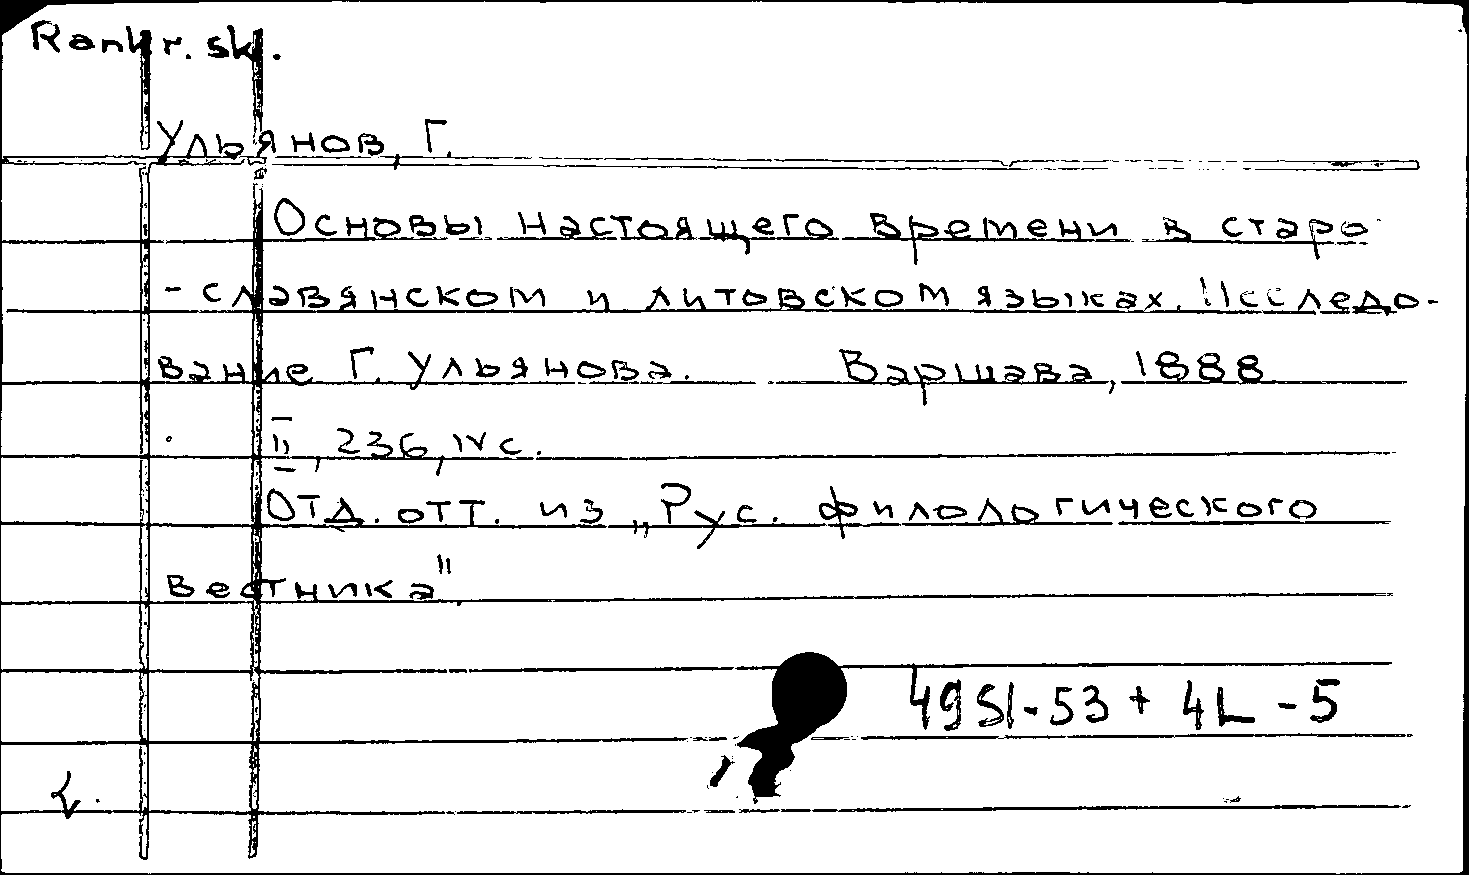 Rankr. sk.
Ульянов, Г.
Основы настоящего времени в старо
-славянском и литовском языках. Исследо-
вание Г. Ульянова. Варшава, 1888
II, 236, IV с.
Отд. отт. из „Рус. филологического
вестника".
49Sl-53 + 4L-5